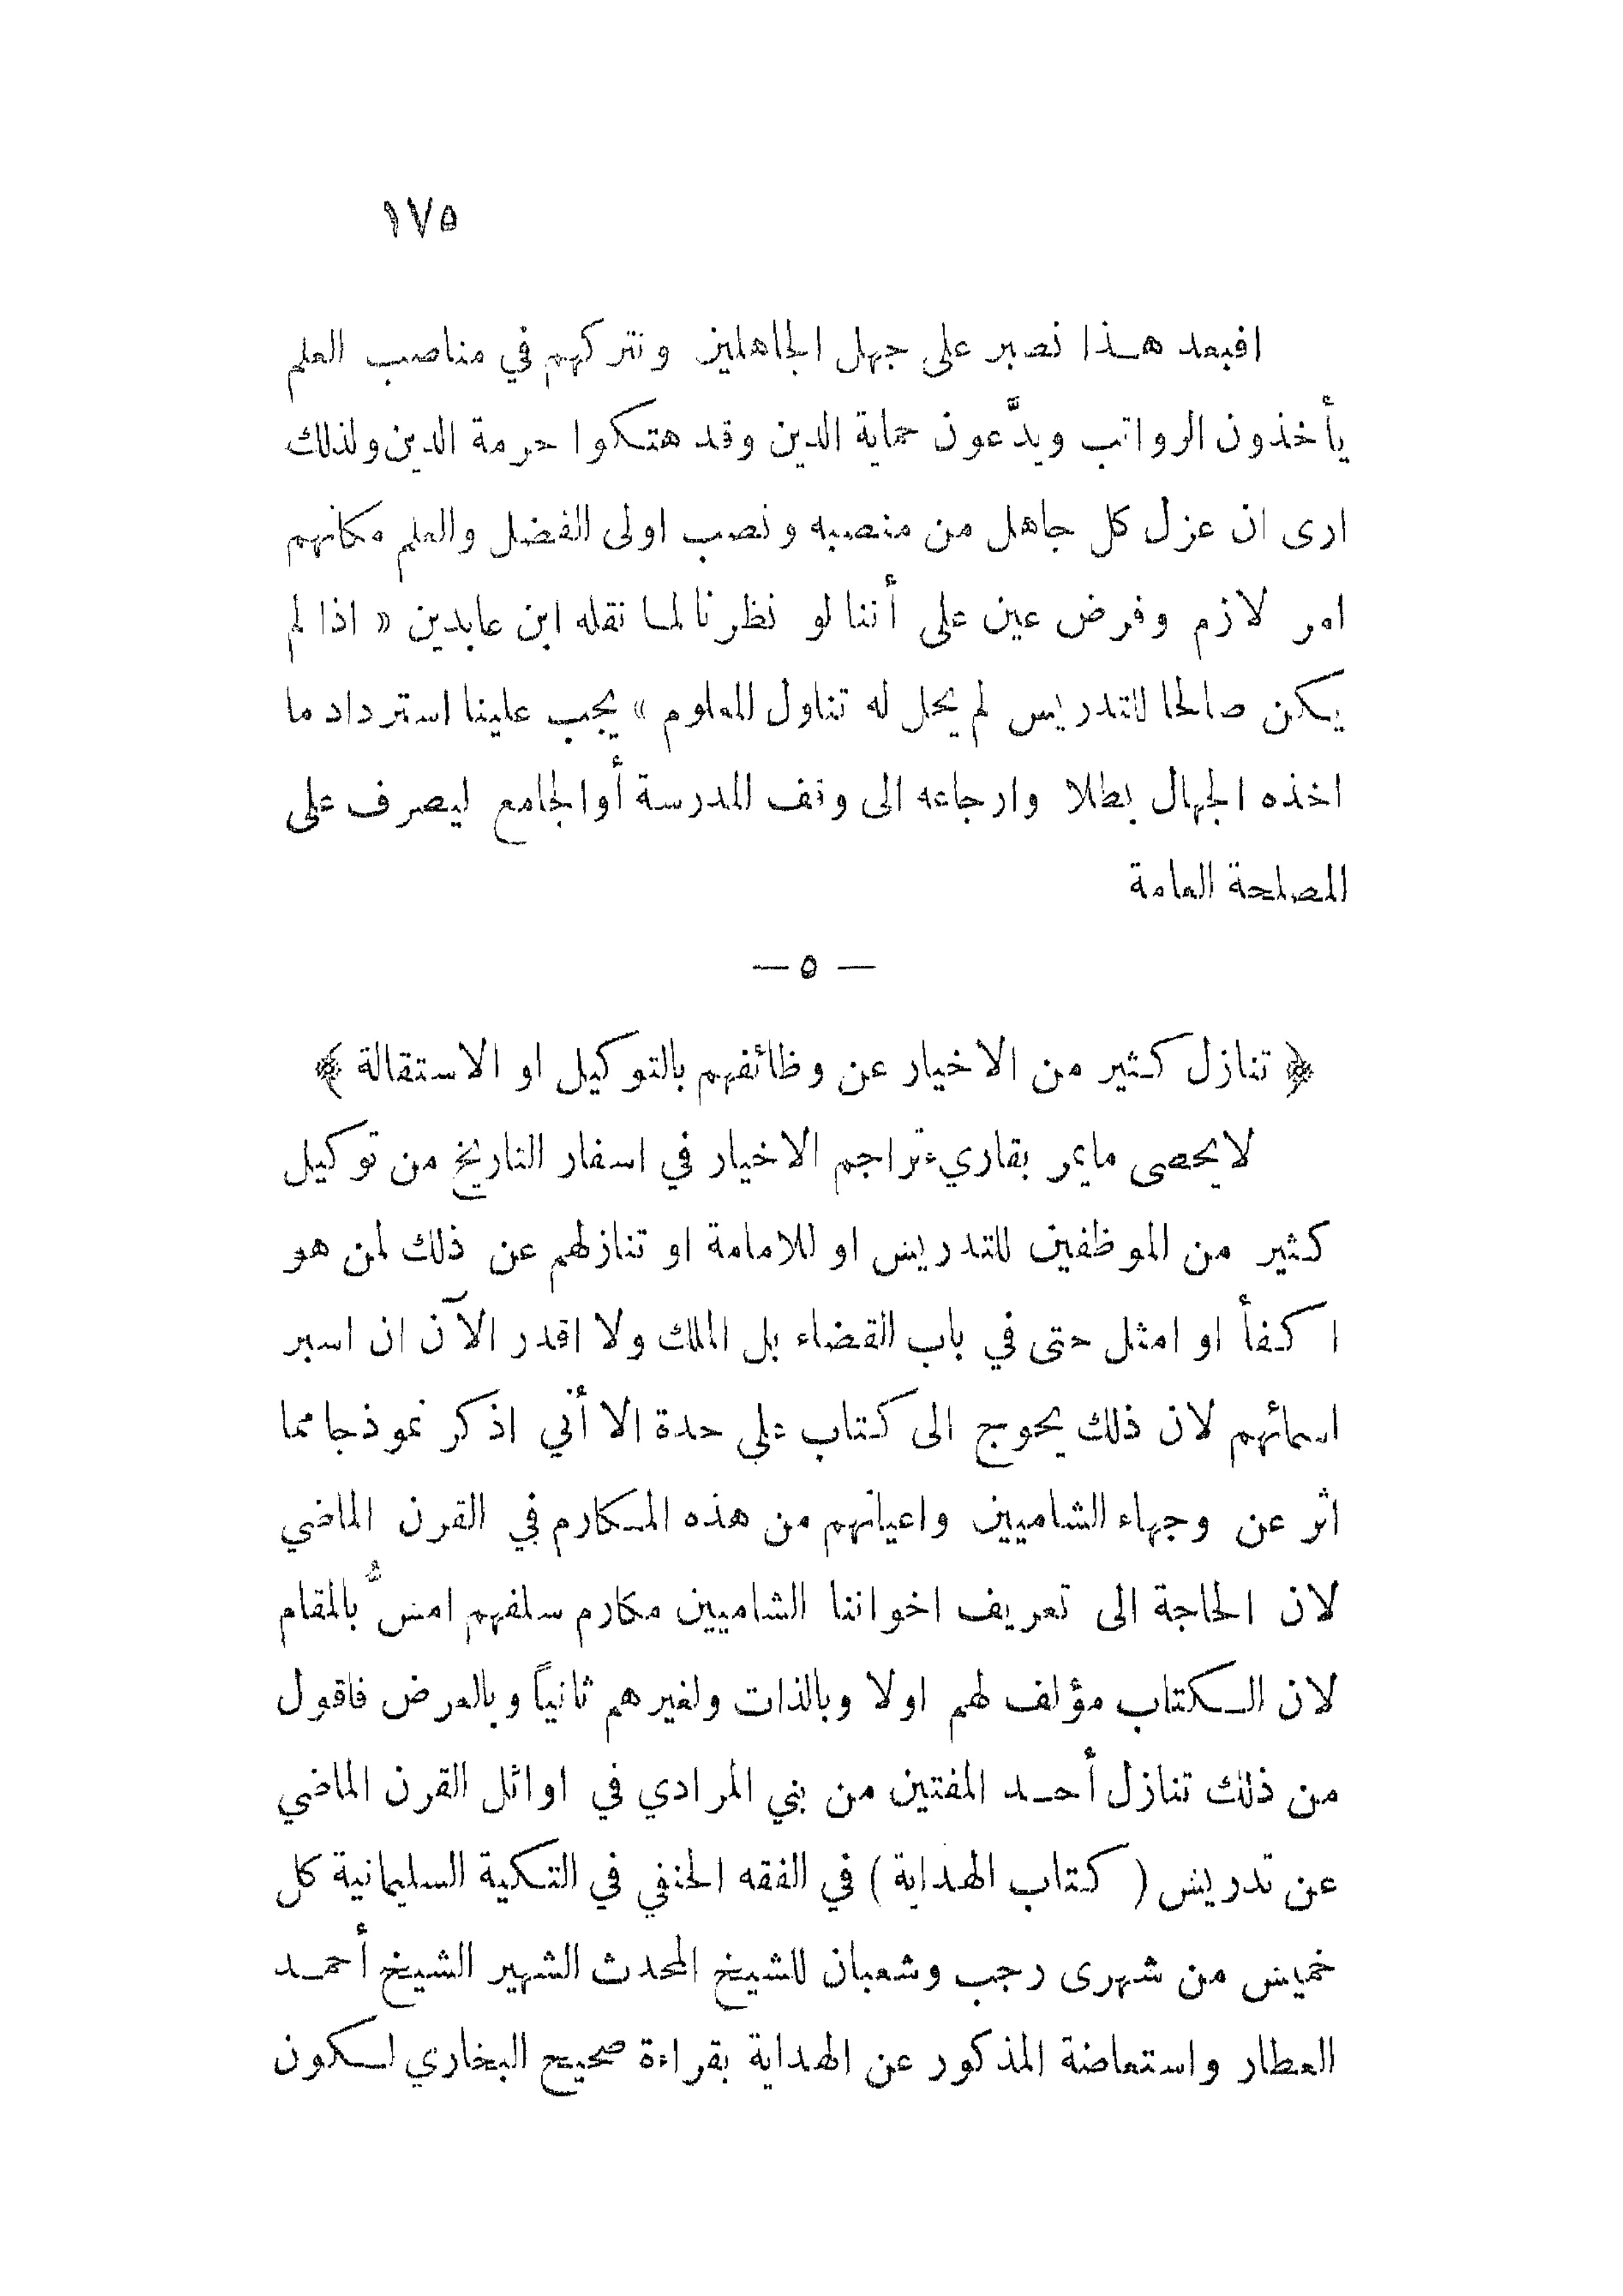 ١٧٥
افبعد هـذا نصبر على جهل الجاهلين ونتركهم في مناصب العلم
يأخذون الرواتب ويدَّعون حماية الدين وقد هتكوا حرمة الدين ولذلك
ارى ان عزل كل جاهل من منصبه ونصب اولى الفضل والعلم مكانهم
امر لازم وفرض عين على أننا لو نظرنا لما نقله ابن عابدين « اذا لم
يكن صالحا للتدريس لم يحل له تناول المعلوم » يجب علينا استرداد ما
اخذه الجهال بطلا وارجاعه الى وقف المدرسة أو الجامع ليصرف على
المصلحة العامة
— ٥ —
﴿ تنازل كثير من الاخيار عن وظائفهم بالتوكيل او الاستقالة ﴾
لا يحصى ما يمر بقارىء تراجم الاخيار في اسفار التاريخ من توكيل
كثير من الموظفين للتدريس او للامامة او تنازلهم عن ذلك لمن هو
اكفأ او امثل حتى في باب القضاء بل الملك ولا اقدر الآن ان اسبر
اسمائهم لان ذلك يحوج الى كتاب على حدة الا أني اذكر نموذجا مما
اثر عن وجهاء الشاميين واعيانهم من هذه المكارم في القرن الماضي
لان الحاجة الى تعريف اخواننا الشاميين مكارم سلفهم امسُّ بالمقام
لان الكتاب مؤلف لهم اولا وبالذات ولغيرهم ثانياً وبالعرض فاقول
من ذلك تنازل أحـد المفتين من بني المرادي في اوائل القرن الماضي
عن تدريس ( كتاب الهداية ) في الفقه الحنفي في التكية السليمانية كل
خميس من شهرى رجب وشعبان للشيخ المحدث الشهير الشيخ أحمـد
العطار واستعاضة المذكور عن الهداية بقراءة صحيح البخاري لكون